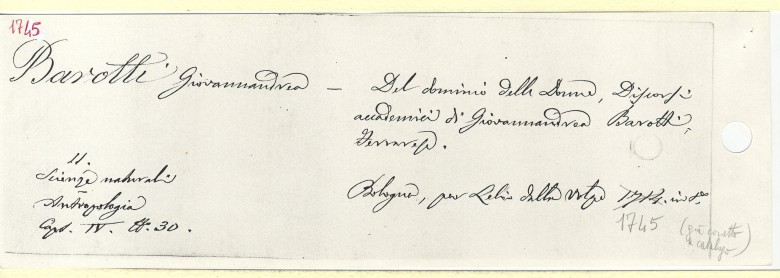 1745
Barotti Giovannandrea — Del dominio delle Donne, Discorsi
accademici di Giovannandrea Barotti,
Ferrarese.
11.
Scienze naturali
Antropologia
Caps. IV. N. 30.
Bologna, per Lelio dalla Volpe 1714. in 8°
1745 (già corretto
a catalogo)